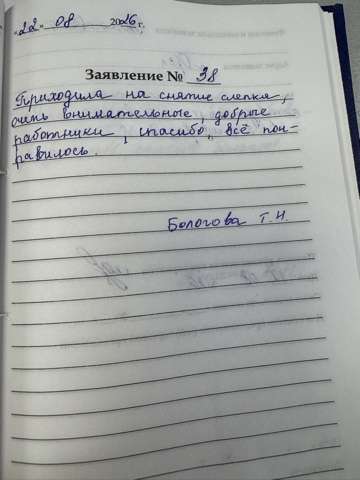 "22" 08 2026 г.
Заявление № 38
Приходила на снятие слепка,
очень внимательные, добрые
работники, спасибо, всё пон-
равилось.
Бологова Т.Н.